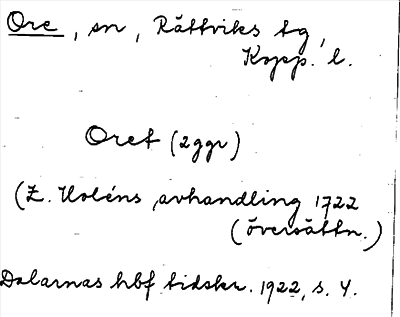 Ore, sn, Rättviks tg,
Kopp. l.
Oret (2ggr)
(Z. Holéns avhandling 1722
(översättn.)
Dalarnas hbf tidskr. 1922, s. 4.